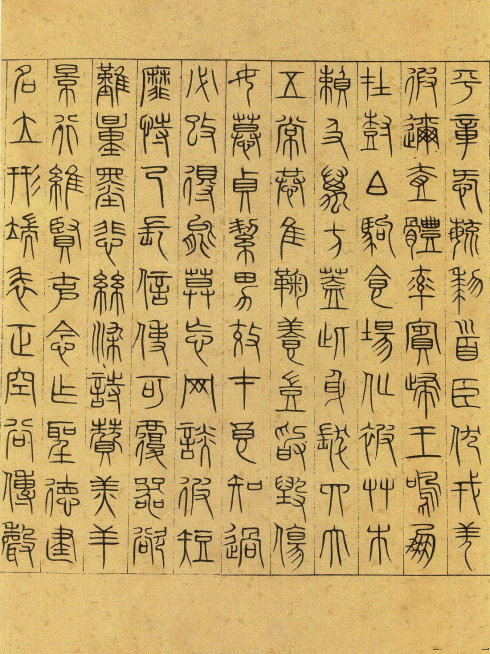 平章愛毓黎首臣伏戎羌
遐邇壹體率賓歸王鳴鳳
在樹白駒食場化被艸木
賴及萬方蓋此身髮四大
五常恭惟鞠養豈敢毀傷
女慕貞絜男效才良知過
必改得能莫忘网談彼短
靡恃己長信使可覆器欲
難量墨悲絲染詩贊羔羊
景行維賢克念作聖德建
名立形端表正空谷傳聲